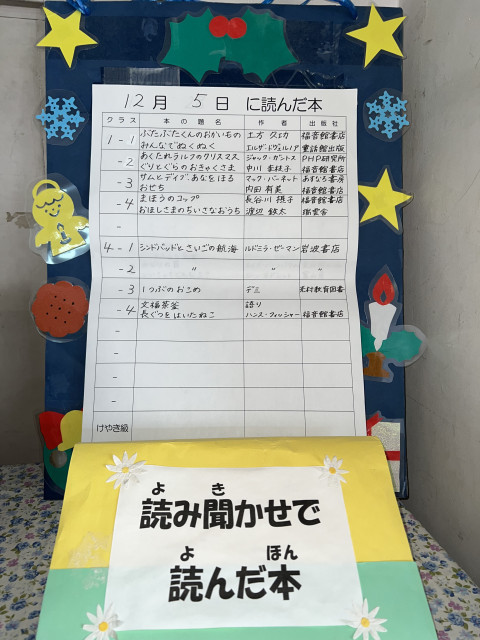 12月 5日 に読んだ本
クラス 本の題名 作者 出版社
1-1 ぶたぶたくんのおかいもの 土方久功 福音館書店
みんなでぬくぬく エルザ・ドヴェルノア 童話館出版
-2 あくたれラルフのクリスマス ジャック・ガントス PHP研究所
ぐりとぐらのおきゃくさま 中川李枝子 福音館書店
-3 サムとデイブ、あなをほる マック・バーネット あすなろ書房
おせち 内田有美 福音館書店
-4 まほうのコップ 長谷川摂子 福音館書店
おほしさまのちいさなおうち 渡辺鉄太 瑞雲舎
-
4-1 シンドバッドとさいごの航海 ルドミラ・ゼーマン 岩波書店
-2 〃 〃 〃
-3 1つぶのおこめ デミ 光村教育図書
-4 文福茶釜 語り
長ぐつをはいたねこ ハンス・フィッシャー 福音館書店
-
-
-
-
けやき級
よ き
読み聞かせで
よ ほん
読んだ本